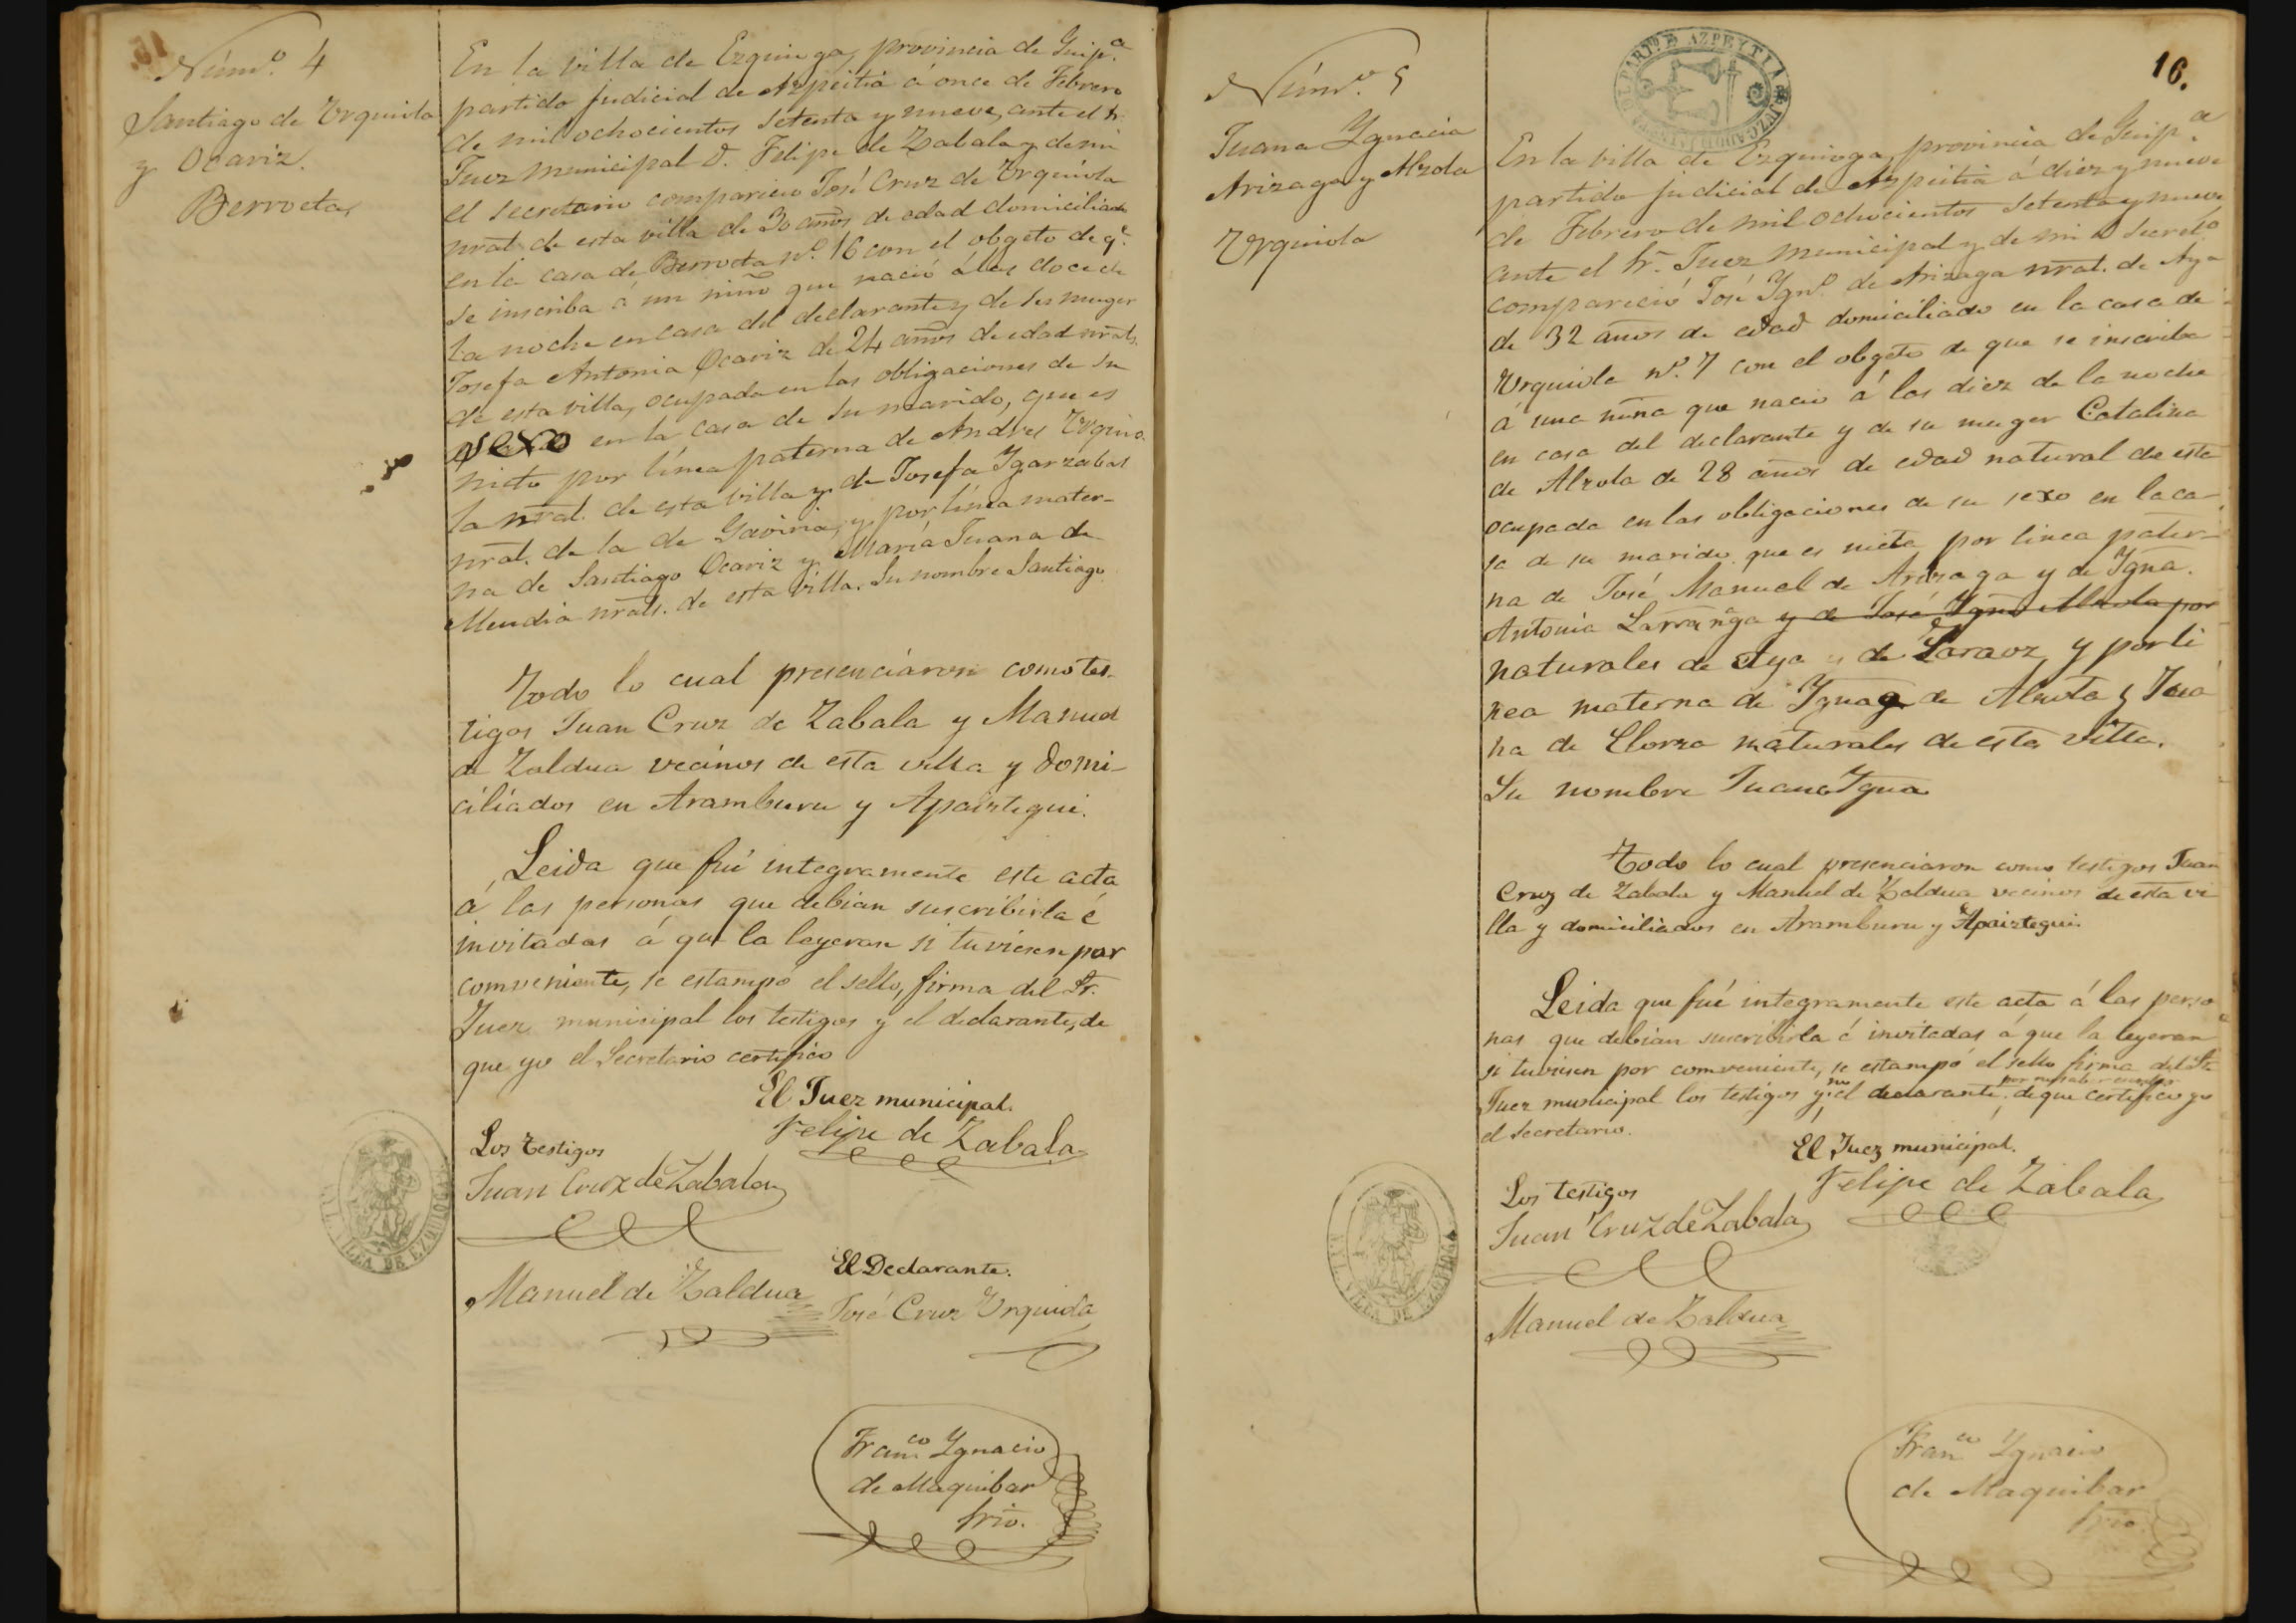 Núm.º 4
Santiago de Urquiola
y Ocariz.
Berroeta
En la villa de Ezquioga, provincia de Guip.ª
partido judicial de Azpeitia á once de Febrero
de mil ochocientos setenta y nueve, ante el Sr.
Juez municipal D. Felipe de Zabala y de mi
el secretario compareció José Cruz de Urquiola
nral. de esta villa de 30 años de edad domiciliado
en la casa de Berroeta nº. 16 con el obgeto de q.e
se inscriba á un niño que nació á las doce de
la noche en casa del declarante y de su muger
Josefa Antonia Ocariz de 24 años de edad nrals.
de esta villa, ocupada en las obligaciones de su
sexo en la casa de su marido, que es
nieto por línea paterna de Andres Urquio-
la nral. de esta villa y de Josefa Ygarzabal
nral. de la de Gaviria, y por línea mater-
na de Santiago Ocariz y María Juana de
Mendia nrals. de esta villa. Su nombre Santiago.
Todo lo cual presenciaron como tes-
tigos Juan Cruz de Zabala y Manuel
de Zaldua vecinos de esta villa y domi-
ciliados en Aramburu y Apaiztegui.
Leida que fué integramente este acta
á las personas que debian suscribirla é
invitadas á que la leyeran si tuviesen por
comveniente, se estampó el sello, firma del Sr.
Juez municipal los testigos y el declarante, de
que yo el Secretario certifico
El Juez municipal.
Felipe de Zabala
Los testigos
Juan Cruz de Zabala
El Declarante.
Manuel de Zaldua
José Cruz Urquiola
Fran.co Ygnacio
de Maquibar
Srio.
VILLA DE EZQUIOGA
16.
PART.º DE AZPEYTIA
JUZGADO
Núm.º 5
Juana Ygnacia
Arizaga y Alzola
Urquiola
En la villa de Ezquioga, provincia de Guip.ª
partido judicial de Azpeitia á diez y nueve
de Febrero de mil ochocientos setenta y nueve
ante el Sr. Juez municipal y de mi el Secret.º
compareció José Ygn.º de Arizaga nral. de Aya
de 32 años de edad domiciliado en la casa de
Urquiola nº. 7 con el obgeto de que se inscriba
á una niña que nació á las diez de la noche
en casa del declarante y de su muger Catalina
de Alzola de 28 años de edad natural de esta
ocupada en las obligaciones de su sexo en la ca-
sa de su marido que es nieta por linea pater-
na de José Manuel de Arizaga y de Ygna.
Antonia Larrañga y de José Ygn.º Alzola por
naturales de Aya y de Laraoz y por li
nea materna de Ygnag de Alzola y Jua
na de Elorza naturales de esta villa.
Su nombre Juana Ygna
Todo lo cual presenciaron como testigos Juan
Cruz de Zabala y Manuel de Zaldua vecinos de esta vi
lla y domiciliados en Aramburu y Apaiztegui.
Leida que fué integramente este acta á las perso
nas que debian suscribirla é invitadas á que la leyeran
si tuviesen por comveniente, se estampó el sello firma del Sr.
Juez municipal los testigos y no el declarante, por no saber escribir de que certifico yo
el Secretario.
El Juez municipal.
Felipe de Zabala
Los testigos
Juan Cruz de Zabala
Manuel de Zaldua
Fran.co Ygnacio
de Maquibar
Srio.
VILLA DE EZQUIOGA